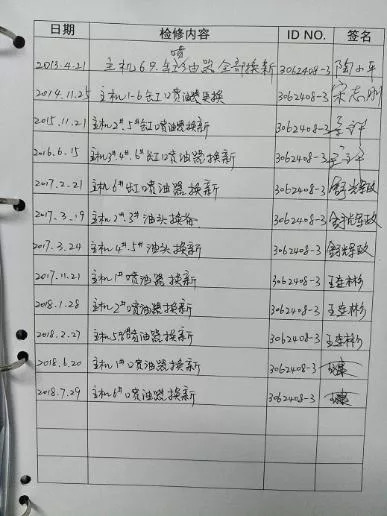 日期 检修内容 ID NO. 签名
2013.4.21 主机6只喷油器全部换新 3062408-3 陶小平
2014.11.25 主机1-6缸喷油器更换 3062408-3 宋志刚
2015.11.21 主机2#.5#缸喷油器换新 3062408-3
2016.6.15 主机3#.4#.6#缸喷油器换新 3062408-3
2017.2.21 主机6#缸喷油器换新 3062408-3
2017.3.19 主机2#.3#油头换新 3062408-3
2017.3.24 主机4#.5#油头换新 3062408-3
2017.11.21 主机1#喷油器换新 3062408-3
2018.1.28 主机2#喷油器换新 3062408-3
2018.2.27 主机5#喷油器换新 3062408-3
2018.6.20 主机1#喷油器换新 3062408-3
2018.7.29 主机6#喷油器换新 3062408-3